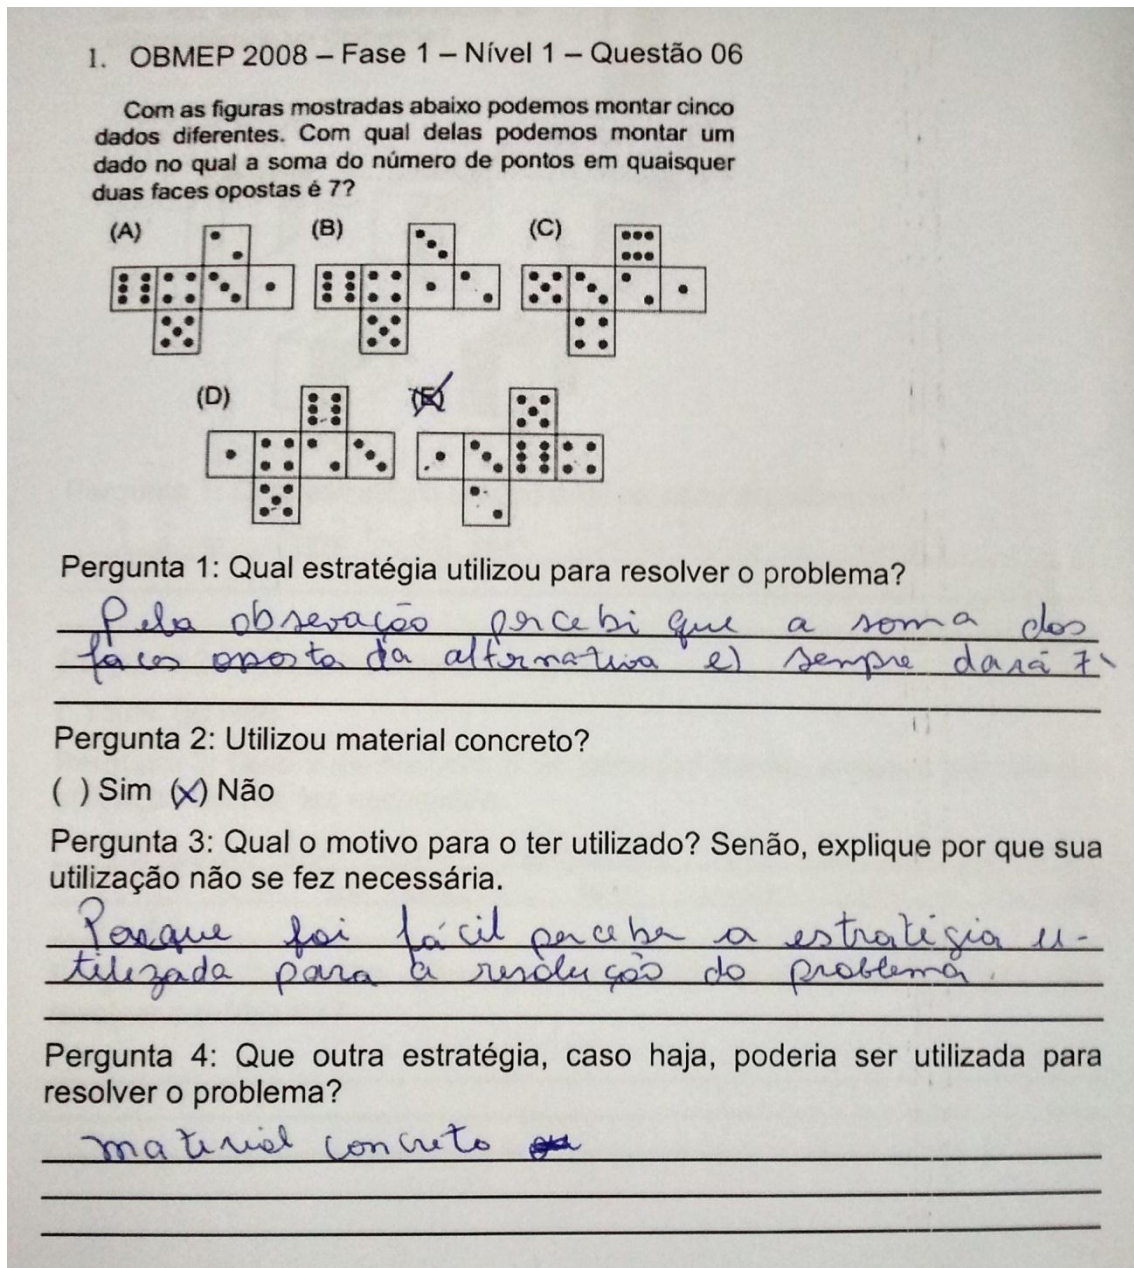 1. OBMEP 2008 – Fase 1 – Nível 1 – Questão 06
Com as figuras mostradas abaixo podemos montar cinco
dados diferentes. Com qual delas podemos montar um
dado no qual a soma do número de pontos em quaisquer
duas faces opostas é 7?
(A) (B) (C)
(D) (E)
Pergunta 1: Qual estratégia utilizou para resolver o problema?
Pela obsevação percebi que a soma dos
faces oposta da alternativa e) sempre dará 7
Pergunta 2: Utilizou material concreto?
( ) Sim (x) Não
Pergunta 3: Qual o motivo para o ter utilizado? Senão, explique por que sua
utilização não se fez necessária.
Porque foi fácil perceber a estratégia u-
tilizada para a resolução do problema.
Pergunta 4: Que outra estratégia, caso haja, poderia ser utilizada para
resolver o problema?
material concreto